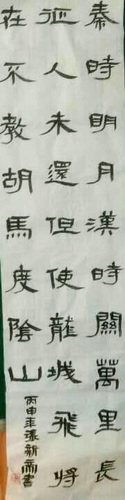 秦時明月漢時關萬里長
征人未還但使龍城飛將
在不教胡馬度陰山
丙申年張新爾書